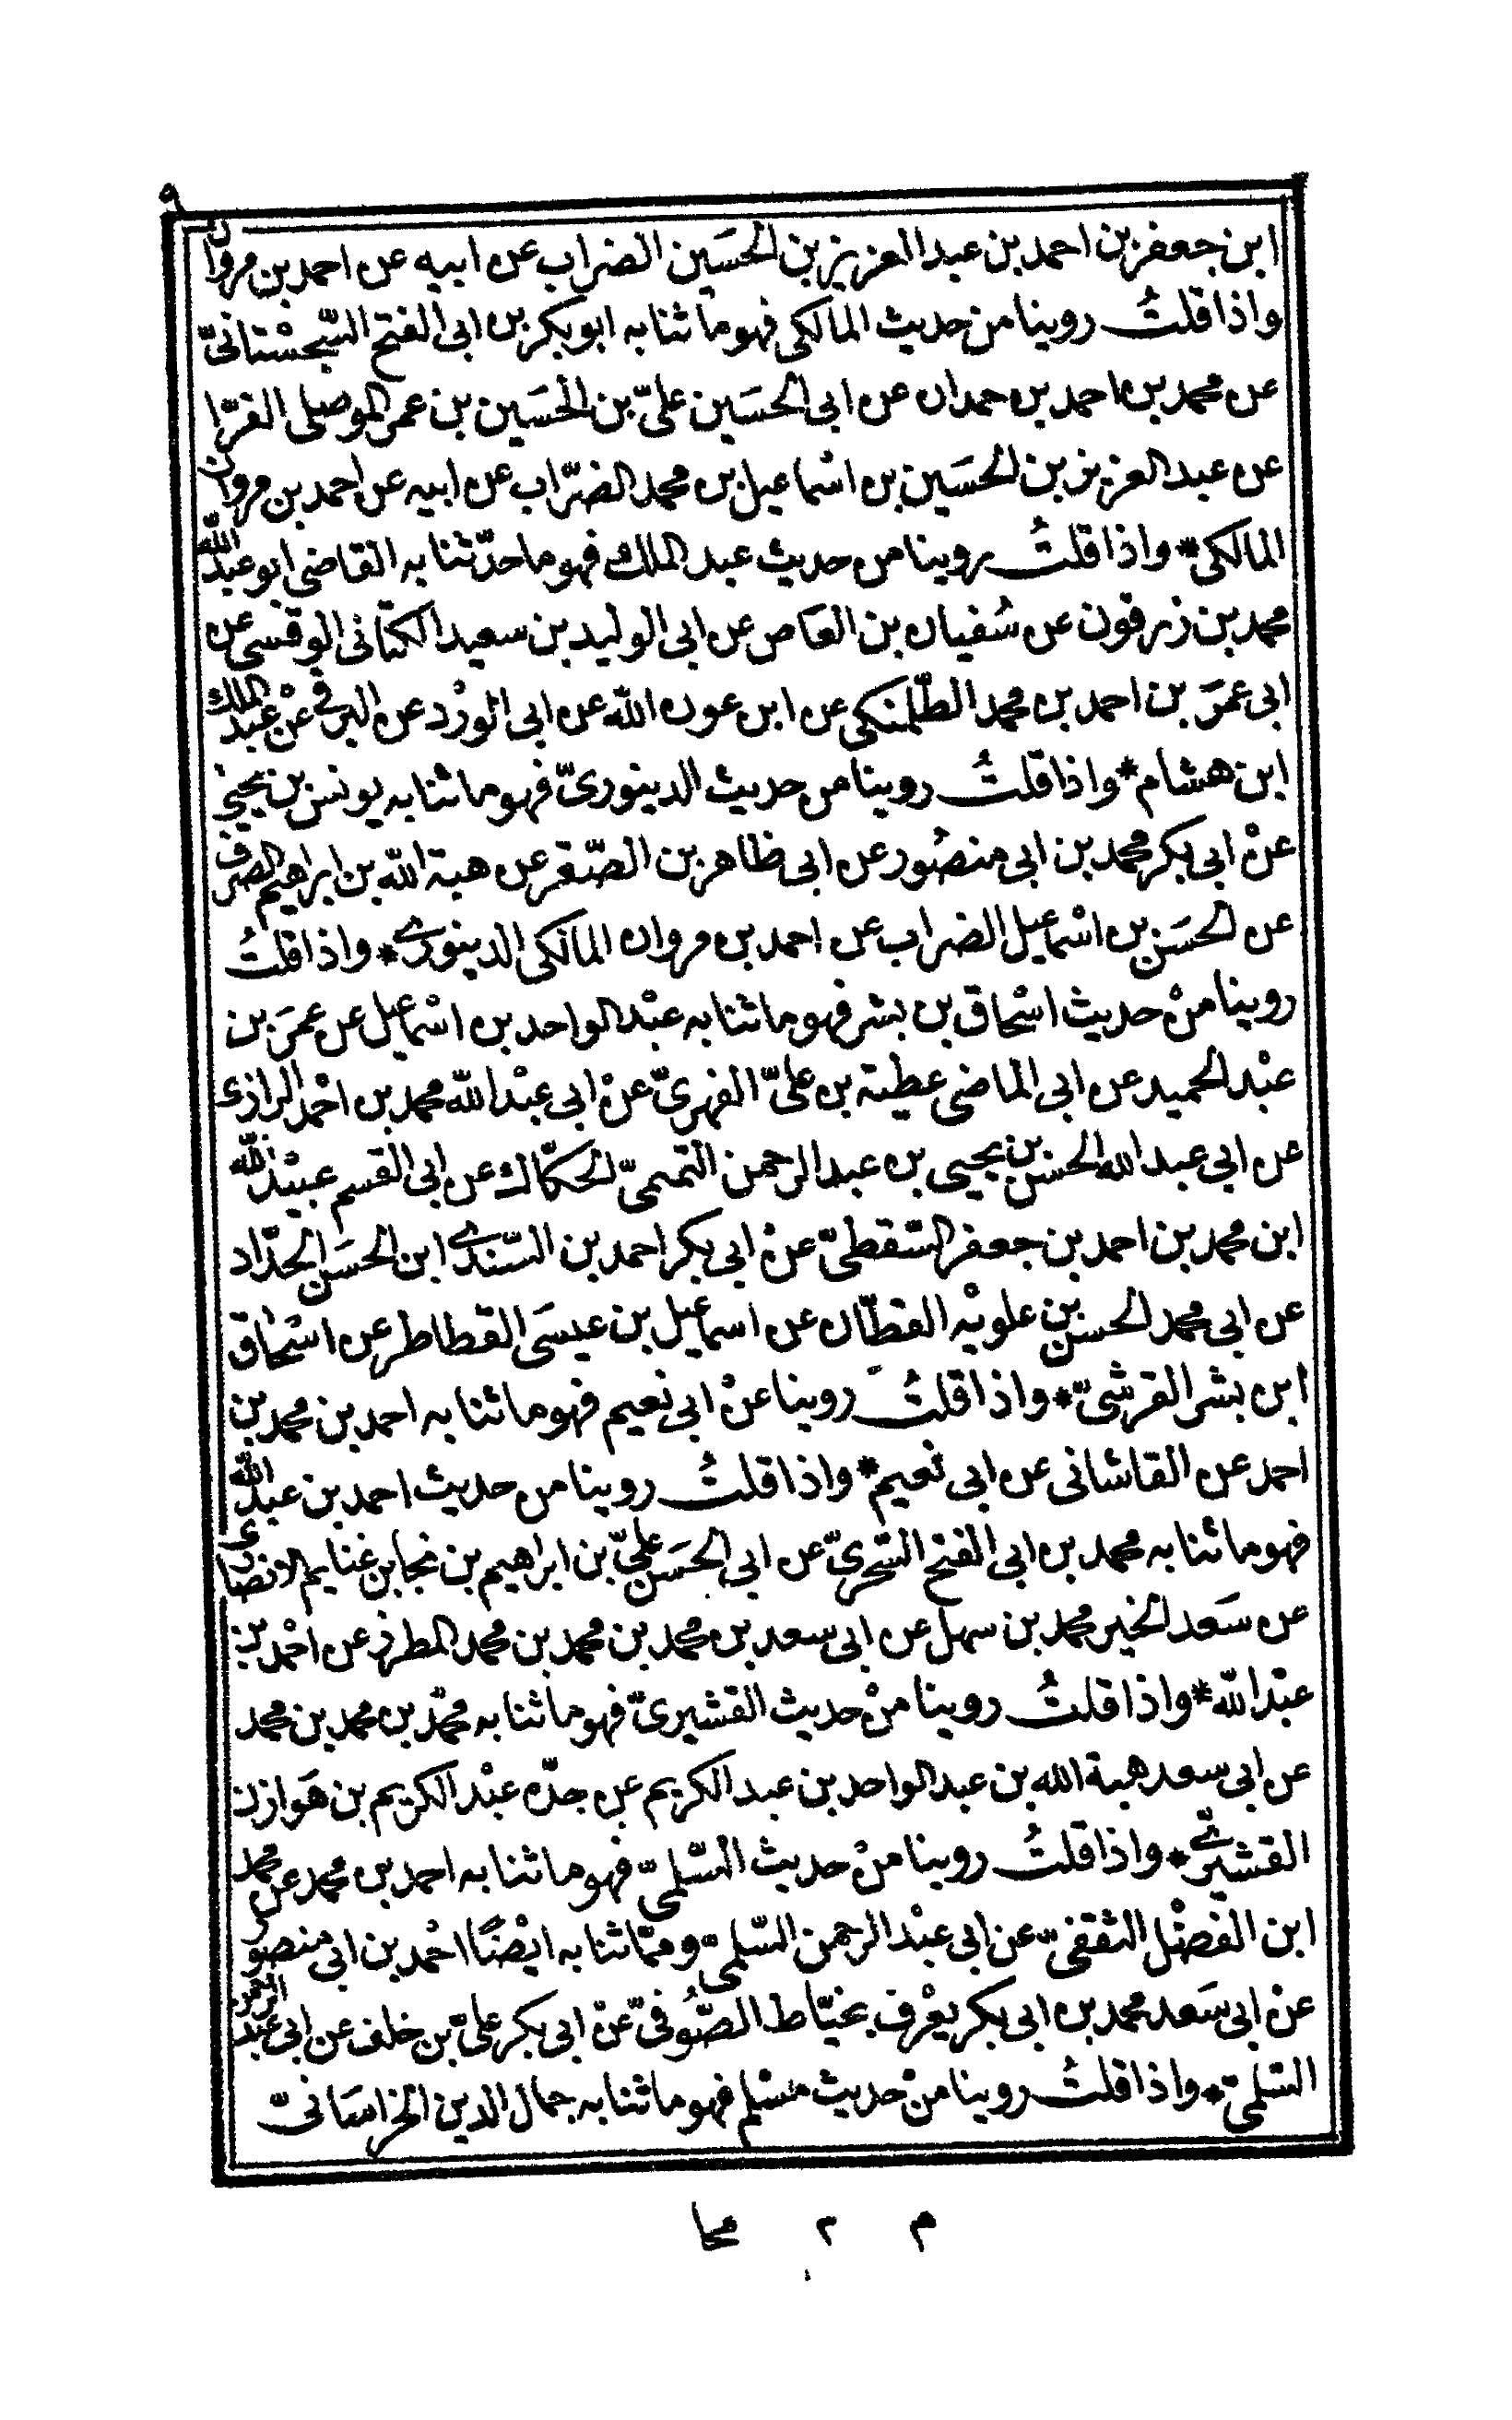 ٩
ابن جعفر بن احمد بن عبد العزيز بن الحسَين الضراب عن ابيه عن احمد بن مروان
واذا قلتُ روينا من حديث المالكى فهو ما ثنا به ابو بكر بن ابى الفتح السّجسْتانىّ
عن محمد بن احمد بن حمدان عن ابى الحسَين علىّ بن الحسَين بن عمر الموصلى الفرّا
عن عبد العزيز بن الحسَين بن اسْماعيل بن محمد الضرّاب عن ابيه عن احمد بن مروان
المالكى * واذا قلتُ روينا من حديث عبد الملك فهو ما حدّثنا به القاضى ابو عبد الله
محمد بن زرقون عن سُفيان بن العاص عن ابى الوليد بن سعيد الكنانى الوقشى عن
ابى عمَر بن احمد بن محمد الطّلمنكى عن ابن عون الله عن ابى الورْد عن البرقى عنْ عبْد الملك
ابن هشام * واذا قلتُ روينا من حديث الدينورىّ فهو ما ثنا به يونس بن يحيى
عنْ ابى بكر محمد بن ابى منصُور عن ابى طاهر بن الصّقر عن هبة الله بن ابراهيم الصراف
عن الحسَن بن اسْماعيل الضراب عن احمد بن مروان المالكى الدينورى * واذا قلتُ
روينا منْ حديث اسْحاق بن بشر فهو ما ثنا به عبْد الواحد بن اسْماعيل عن عمَر بن
عبْد الحميد عن ابى الماضى عطية بن علىّ الفهرىّ عنْ ابى عبْد الله محمد بن احْمد الرازى
عن ابى عبد الله الحسن بن يحيى بن عبد الرحمن التميمىّ الحكّاك عن ابى القسم عبيْد الله
ابن محمد بن احمد بن جعفر السّقطىّ عنْ ابى بكر احمد بن السّندى ابن الحسَن الحدّاد
عن ابى محمد الحسن بن علويْه القطّان عن اسماعيل بن عيسَى القطاطر عن اسْحاق
ابن بشر القرشىّ * واذا قلتُ روينا عنْ ابى نعيم فهو ما ثنا به احمد بن محمد بن
احمد عن القاشانى عن ابى نعيم * واذا قلتُ روينا من حديث احمد بن عبد الله
فهو ما ثنا به محمد بن ابى الفتح السّحرىّ عن ابى الحسَن علىّ بن ابراهيم بن نجا بن غنايم الانصارى
عن سَعد الخير محمد بن سهل عن ابى سعد بن محمد بن محمد بن محمد المطرز عن احْمد بن
عبْد الله * واذا قلتُ روينا منْ حديث القشيرىّ فهو ما ثنا به محمّد بن محمد بن محمد
عن ابى سعد هبة الله بن عبد الواحد بن عبد الكريم عن جدّه عبْد الكريم بن هَوازن
القشيرىّ * واذا قلتُ روينا منْ حديث السّلمىّ فهو ما ثنا به احمد بن محمد عن محمد
ابن الفضْل الثقفىّ عن ابى عبْد الرحمن السّلمىّ وممّا ثنا به ايْضًا احْمد بن ابى منصور
عنْ ابى سَعد محمد بن ابى بكر يعْرف بخيّاط الصّوفىّ عنْ ابى بكر علىّ بن خلف عن ابى عبْد الرحمن
السّلمىّ * واذا قلتُ روينا منْ حديث مسْلم فهو ما ثنا به جمال الدين الخراسَانىّ
م ٢ محا